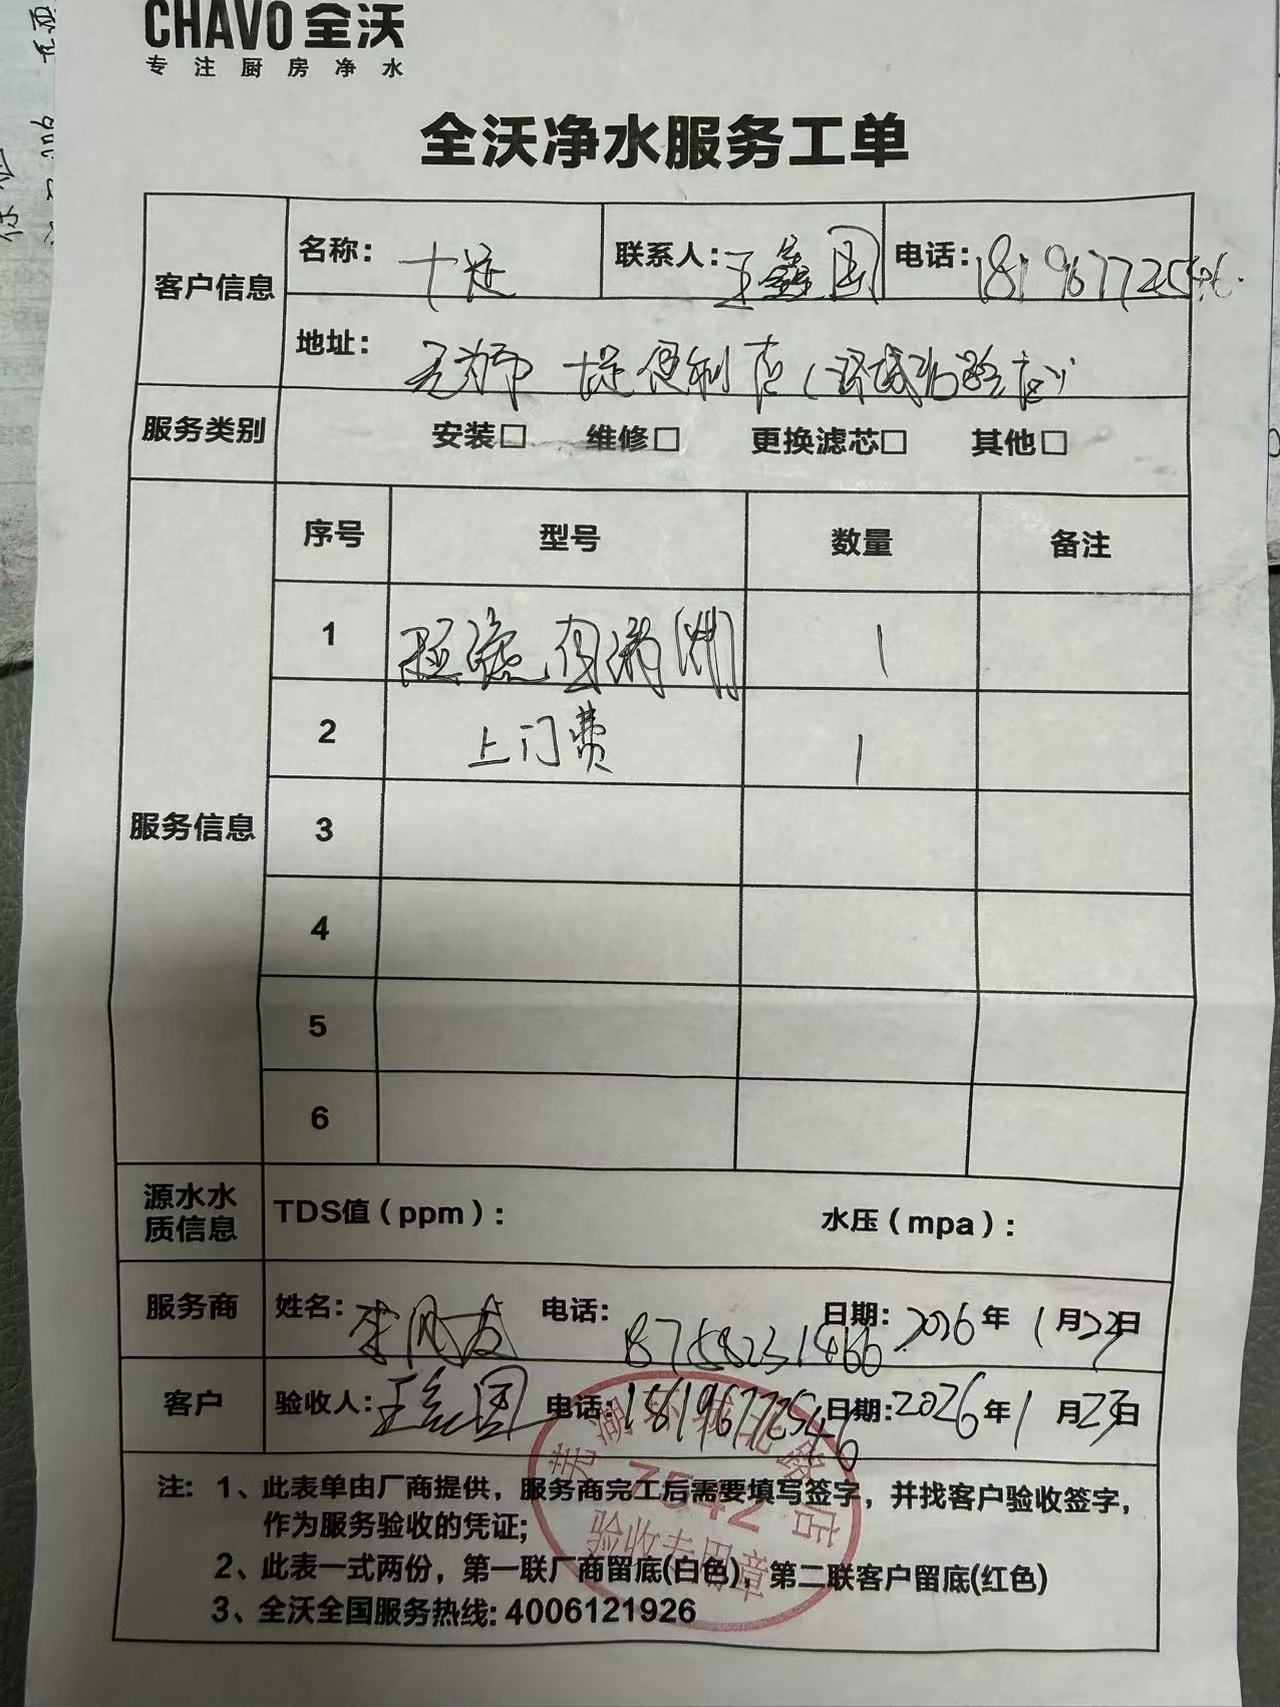 CHAVO 全沃
专注厨房净水
全沃净水服务工单
客户信息
名称: 十足 联系人: 王鑫国 电话: 18196772546
地址: 芜湖 十足便利店(环城北路店)
服务类别 安装□ 维修□ 更换滤芯□ 其他□
服务信息
序号 型号 数量 备注
1 1
2 上门费 1
3
4
5
6
源水水质信息 TDS值(ppm): 水压(mpa):
服务商 姓名: 李 电话: 18758231466 日期: 2026年1月23日
客户 验收人: 王鑫国 电话: 18196772546 日期: 2026年1月23日
注: 1、此表单由厂商提供，服务商完工后需要填写签字，并找客户验收签字，
作为服务验收的凭证;
2、此表一式两份，第一联厂商留底(白色)，第二联客户留底(红色)
3、全沃全国服务热线: 4006121926
芜湖环城北路店
7542
验收专用章